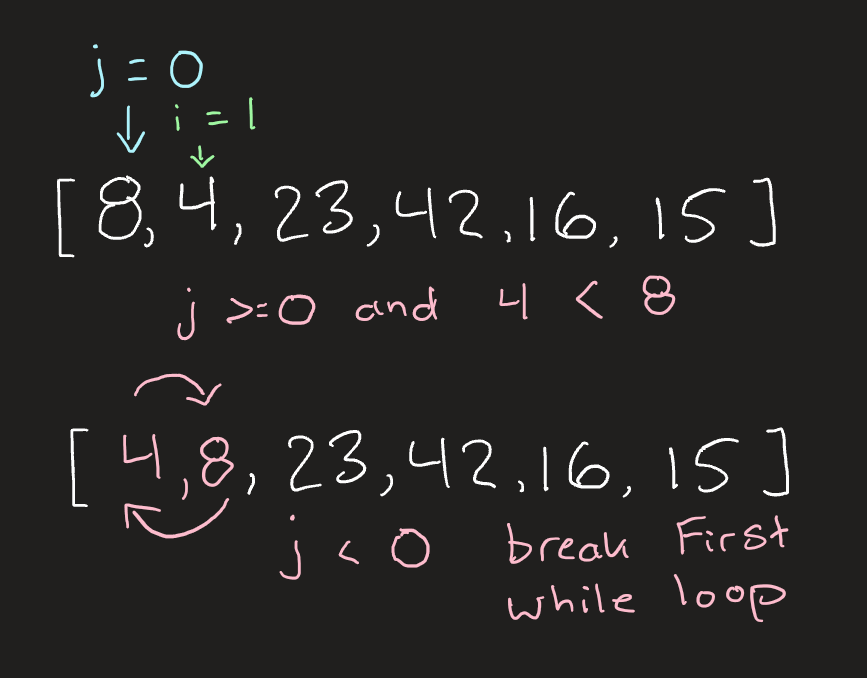 j = 0
i = 1
[ 8, 4, 23, 42, 16, 15 ]
j >=0 and 4 < 8
[ 4, 8, 23, 42, 16, 15 ]
j < 0 break First
while loop